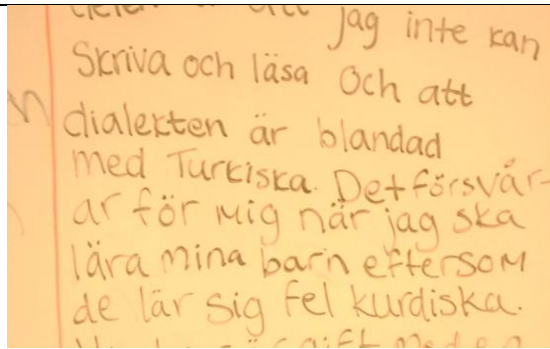 att jag inte kan
Skriva och läsa och att
dialekten är blandad
med Turkiska. Det försvår-
ar för mig när jag ska
lära mina barn eftersom
de lär sig fel kurdiska.